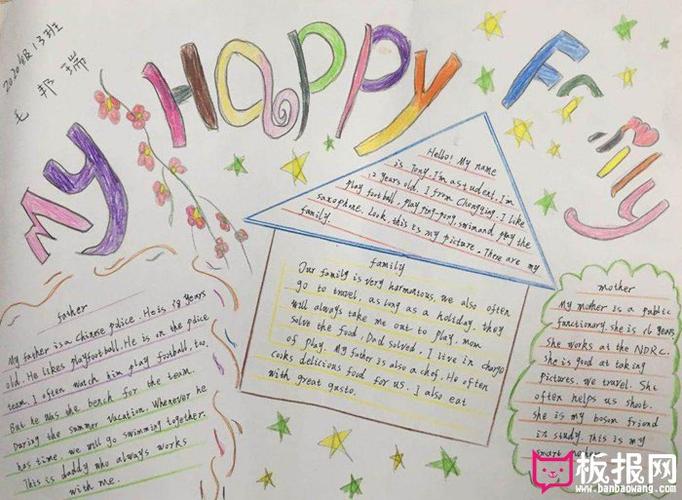 2020级13班
毛邦瑞
My Happy Family
Hello! My name
is Tony. I'm a student. I'm
12 years old. I from Chongqing. I like
play football, play ping-pong, swim and play the
saxophone. Look, this is my picture. These are my
family
father
My father is a Chinese police. He is 38 years
old. He likes playfootball. He is in the police
team. I often watch him play football, too.
But he was she bench for the team.
During the summer vacation. Whenever he
has time, we will go swimming together.
This is daddy who always works
with me.
family
Our family is very harmonious, we also often
go to travel, as long as a holiday, they
will always take me out to play, mom
solve the food, Dad solved, I live in charge
of play. My father is also a chef. He often
cooks delicious food for us. I also eat
with great gusto.
mother
My mother is a public
functionary. she is years
She works at the NDRC.
she is good at taking
pictures. we travel. She
often helps us shoot.
she is my bosom friend
in study. This is my
smart mother.
板报网
www.banbaowang.com